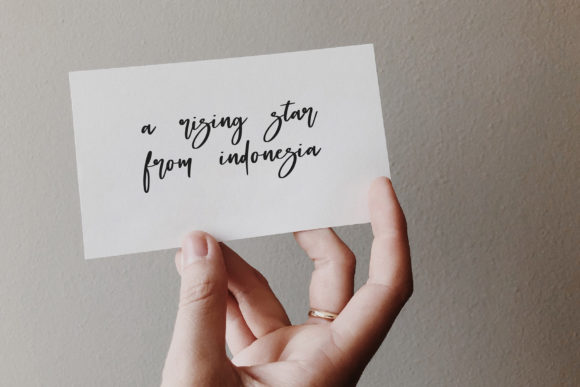 a rising star
from indonesia